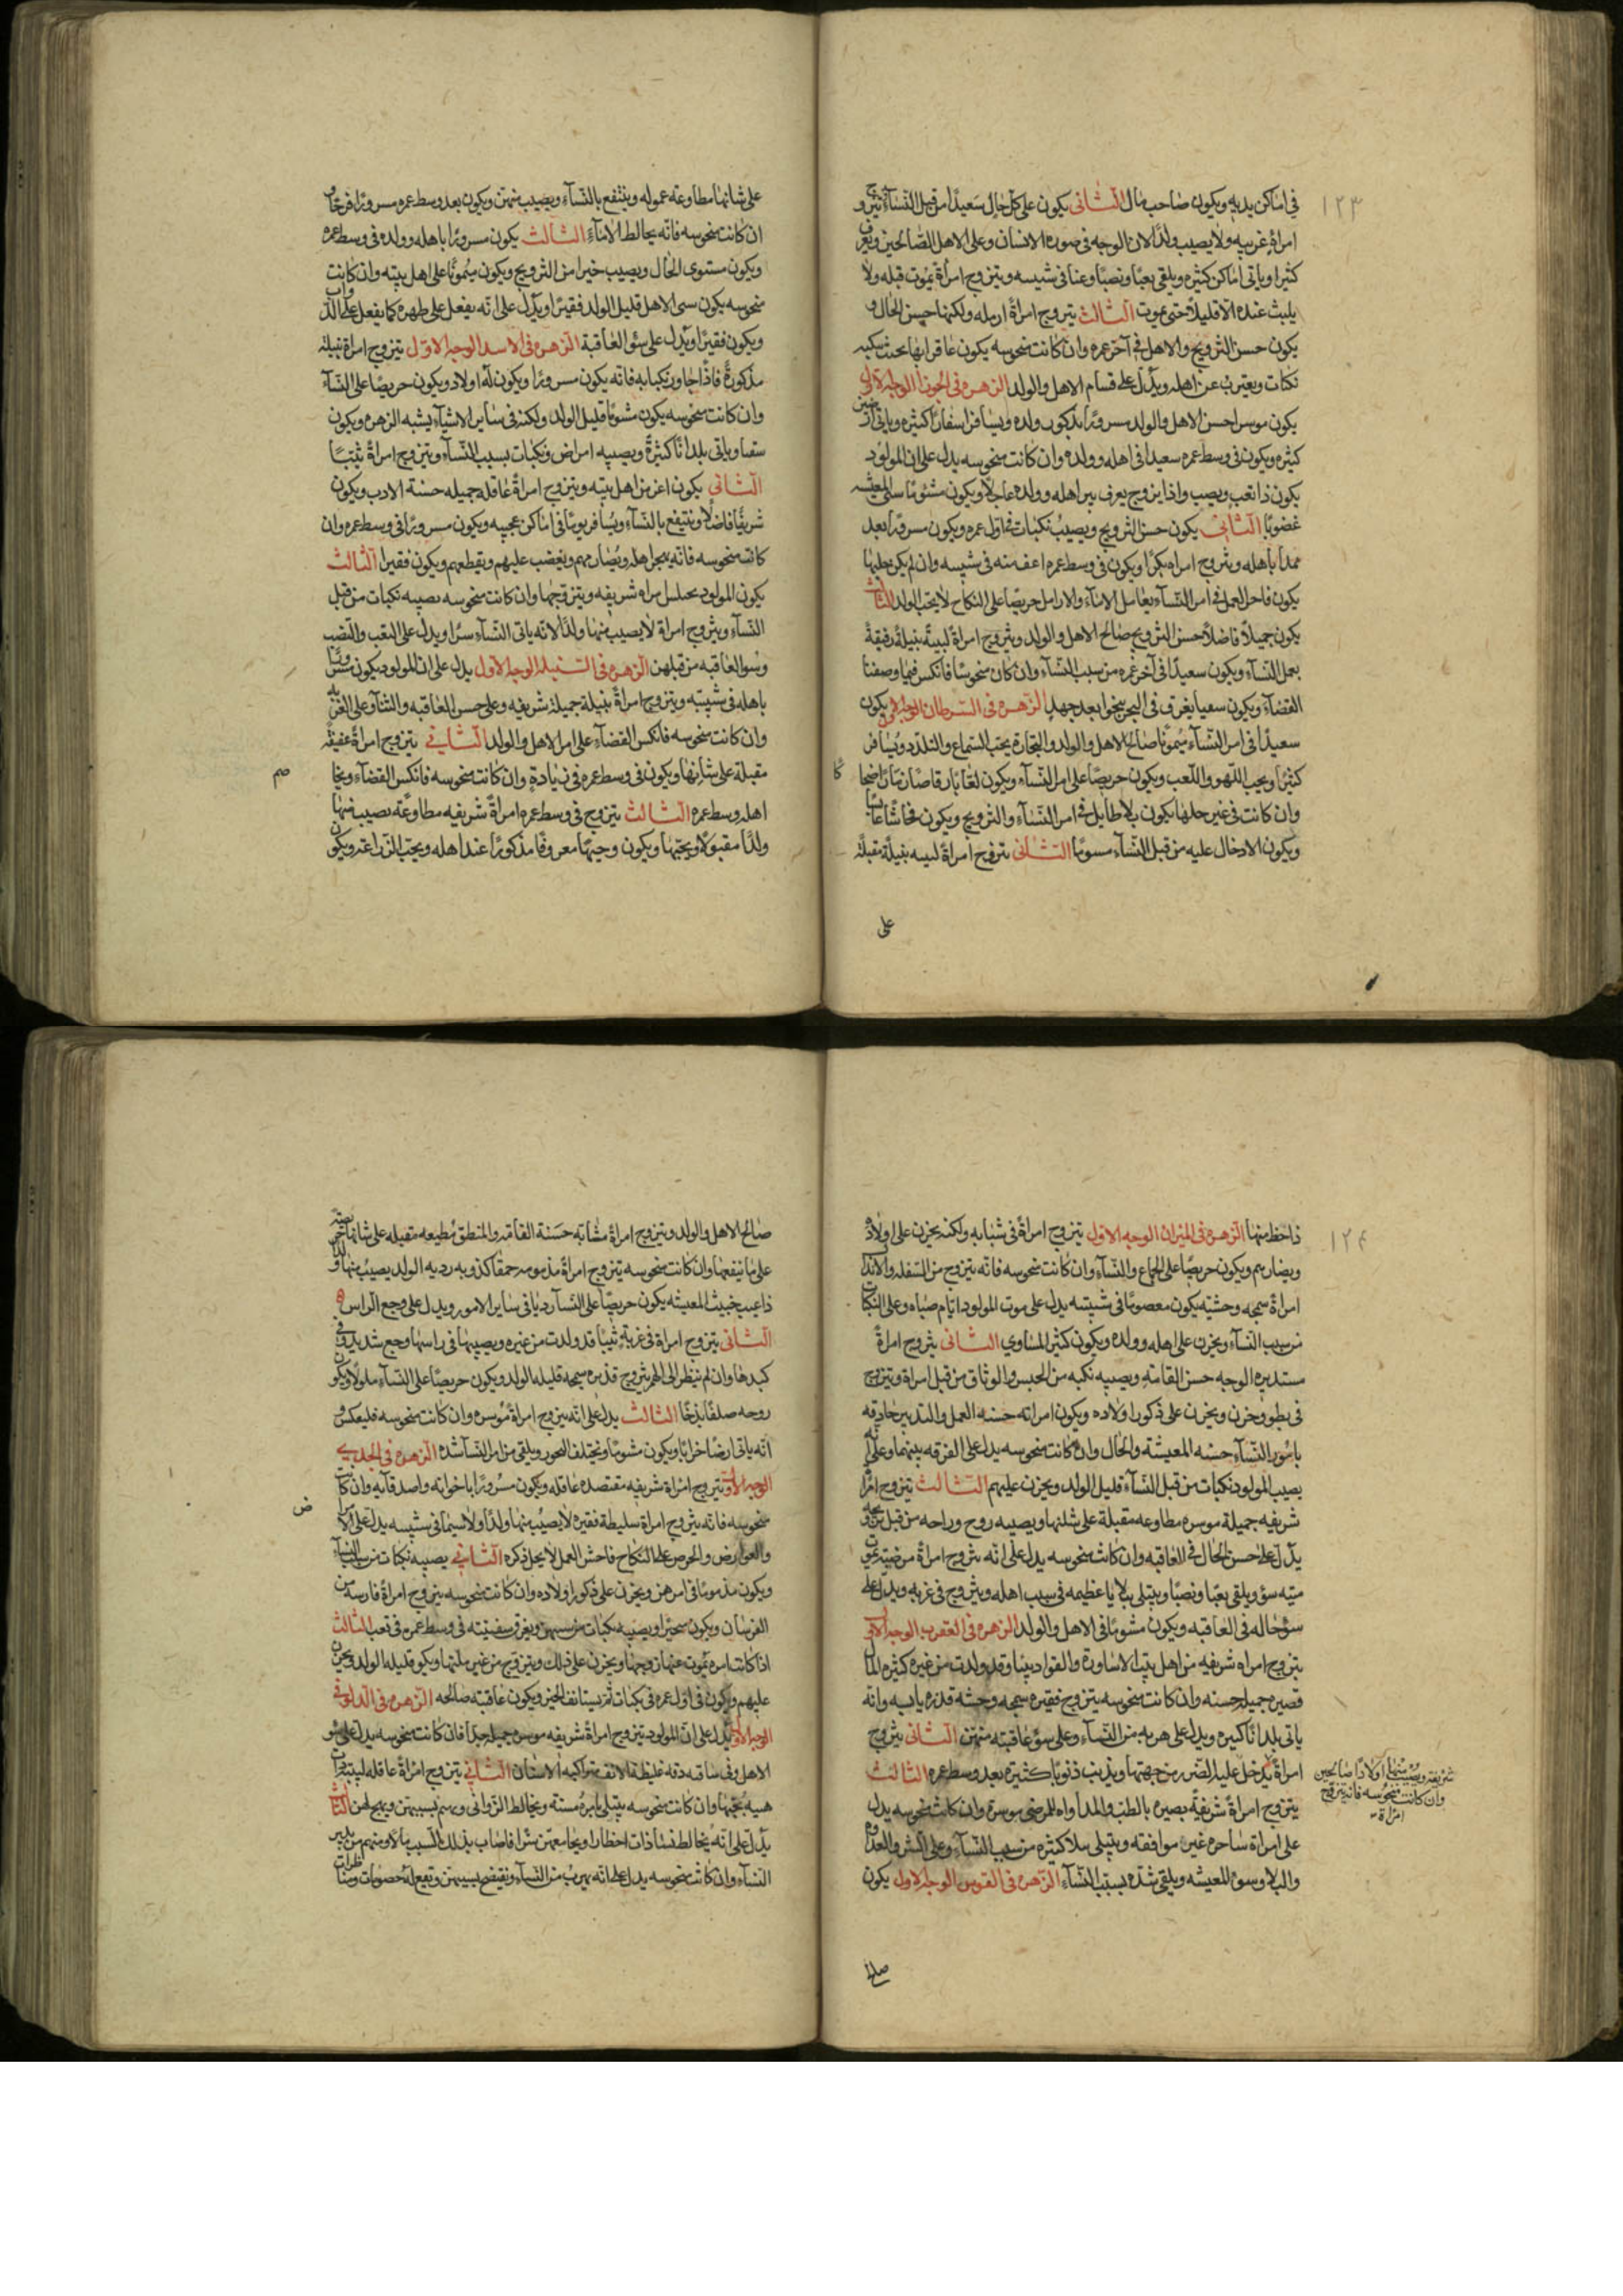 ١٢٣
في اماكن يديه ويكون صاحب مال الثاني يكون على كل حال سعيدًا من قبل النساء يتزوج
امراة غريبه ولا يصيب ولدًا لان الوجه في صورة الانسان وعلى الاهل الصالحين ويعرف
كثيرا وياتى اماكن كثيره ويلقى تعبًا ونصبًا وعنا في شيبسه ويتزوج امرأة يموت قبله ولا
يلبث عنده الا قليلا حتى يموت الثالث يتزوج امراة ارمله ولكنها حسن الحال و
يكون حسن التزويج والاهل في آخر عمره وان كانت منحوسه يكون عاقرا بها
نكبات ويغترب عن اهله ويدل على قسام الاهل والولد الزهره في الجوزا الوجه الاول
يكون موسرا حسن الاهل والولد مسرورًا ولده ويسافر اسفارًا كثيره وياتى
كثيره ويكون في وسط عمره سعيدا في اهله وولده وان كانت منحوسه يدل على ان المولود
يكون ذا تعب ونصب واذا يزوج يعرف بين اهله وولده عاجلًا ويكون مشئومًا سئ المعيشه
غضوبًا الثاني يكون حسن التزويج ويصيب نكبات في اول عمره ويكون مسرورًا بعد
باهله ويتزوج امراه بكرًا ويكون في وسط عمره اعف منه في شيبسه وان لم يكن
يكون فاحل العمل في امر النساء يعامل الاماء والارامل حريصًا على النكاح لا يحب الولد الثالث
يكون جميلًا فاضلًا حسن التزويج صالح الاهل والولد ويتزوج امراة لبيبةً نبيلةً رفيقةً
بعمل النساء ويكون سعيدًا في آخر عمره من سبب النساء وان كان منحوسًا فانكس فيما وصفنا
القضاء ويكون سعيا يغرق في البحر ينجوا بعد جهد الزهره في السرطان الوجه الاول يكون
سعيدًا في امر النساء ميمونًا صالح الاهل والولد والتجارة يحب السماع والتلذذ ويسافر
كثيرًا ويحب اللهو واللعب ويكون حريصًا على امر النساء ويكون لعّابًا رقاصًا زمّارًا
وان كانت في غير حلها يكون بلا طايل في امر النساء والتزويج ويكون فحاشًا
ويكون الادخال عليه من قبل النساء الثاني يتزوج امراةً لبيبه نبيلة مقبلة
على
على شانها مطاوعه عموله وينتفع بالنساء ويصيب منهن ويكون بعد وسط عمره مسرورًا فرحًا و
ان كانت منحوسه فانه يخالط الاماء الثالث يكون مسرورًا باهله وولده في وسط عمره
ويكون مستوى الحال ويصيب خيرا من التزويج ويكون ميمونًا على اهل بيته وان كانت
منحوسه يكون سئ الاهل قليل الولد فقيرًا ويدل على انه يفعل على ظهره كما يفعل على الدواب
ويكون فقيرًا ويدل على سؤ العاقبة الزهره في الاسد الوجه الاول يتزوج امراة نبيلة
مذكورةً فاذا جاوز نكباته فانه يكون مسرورًا ويكون له اولاد ويكون حريصًا على النساء
وان كانت منحوسه يكون مشومًا قليل الولد ولكنه في ساير الاشياء يشبه الزهره ويكون
وياتى بلدانًا كثيرةً ويصيبه امراض ونكبات بسبب النساء ويتزوج امراةً ثيبًا
الثاني يكون اعز من اهل بيته ويتزوج امراةً عاقله جميله حسنة الادب ويكون
شريفًا فاضلًا وينتفع بالنساء ويسافر يومًا في اماكن عجيبه ويكون مسرورًا في وسط عمره وان
كانت منحوسه فانه يهجر اهله ويضاربهم ويغضب عليهم ويقطعهم ويكون فقيرا الثالث
يكون المولود امراه شريفه ويتزوجها وان كانت منحوسه يصيبه نكبات من قبل
النساء ويتزوج امراة لا يصيب منها ولدًا لانه ياتى النساء سرًا ويدل على التعب والنصب
وسوء العاقبه من قبلهن الزهره في السنبله الوجه الاول يدل على ان المولود يكون مسرورًا
باهله في شيبته ويتزوج امراةً نبيلة جميلة شريفه وعلى حسن العاقبه والثنا وعلى العز
وان كانت منحوسه فانكس القضاء على امر الاهل والولد الثاني يتزوج امراةً عفيفة
مقبلة على شانها ويكون في وسط عمره في زيادة وان كانت منحوسه فانكس القضاء
اهله وسط عمره الثالث يتزوج في وسط عمره امراةً شريفه مطاوعًه يصيب منها
ولدًا مقبولًا ويحبّها ويكون وجيهًا معروفًا مذكورًا عند اهله ويحب الزراعه ويكون
١٢٤
ذا حظ منها الزهره في الميزان الوجه الاول يتزوج امراةً في شبابه ولكنه يحزن على اولاده
ويضاربهم ويكون حريصًا على الجماع والنساء وان كانت منحوسه فانه يتزوج من السفله والانذال
امراةً سمجه وحشيّه يكون معصومًا في شيبته يدل على موت المولود ايام صباه وعلى النكبات
من سبب النساء ويحزن على اهله وولده ويكون كثير المساوي الثاني يتزوج امراةً
مستديره الوجه حسن القامة ويصيبه نكبه من الحبس والوثاق من قبل امراة ويتزوج
في بطؤ وحزن ويحزن على ذكور اولاده ويكون امراته حسنه العمل والتدبير حاذقه
بامور النساء حسنه المعيشه والحال وان كانت منحوسه يدل على الفرقه بينهما وعلى انه
يصيب المولود نكبات من قبل النساء قليل الولد ويحزن عليهم الثالث يتزوج امراة
شريفه جميلة موسره مطاوعه مقبلة على شانها ويصيبه روح وراحه من قبل
يدل على حسن الحال في العاقبه وان كانت منحوسه يدل على انه يتزوج امراةً مرضيّه يموت
ميته سؤ ويلقى تعبًا ونصبًا ويبتلى ببلايا عظيمه في سبب اهله ويتزوج في غربه ويدل على
سؤ حاله في العاقبه ويكون مشئومًا في الاهل والولد الزهره في العقرب الوجه الاول
يتزوج امراه شريفه من اهل بيت الاساورة والقواد وقد ولدت من غيره كثيره المال
قصيره جميله حسنه وان كانت منحوسه يتزوج فقيره سمجه وحشه قذره وانه
ياتى بلدانًا كثيره ويدل على هربه من النساء وعلى سؤ عاقبته منهن الثاني يتزوج
امراةً يدخل عليه الضرر من جهتها ويذنب ذنوبًا كثيره بعد وسط عمره الثالث
يتزوج امراةً شريفيّه بصيره بالطبّ والمداواه للمرضى موسرة وان كانت منحوسه يدل
على امراة ساحره غير موافقه ويبتلى كثيره من سبب النساء وعلى الشر والعداوه
والبلا وسوء المعيشه ويلقى شدّه بسبب النساء الزهره في القوس الوجه الاول يكون
شريفه ويصيب منها اولادًا صالحين
وان كانت منحوسه فانه يتزوج
امراة
صالح
صالح الاهل والولد ويتزوج امراةً مشابه حسنة القامة والمنطق مطيعه مقبله على شانها
على ما ينفعها وان كانت منحوسه يتزوج امراةً مذمومه حمقا كذوبه رديه الولد يصيب منها ولدًا
ذا عيب خبيث المعيشه يكون حريصًا على النساء رديًا في ساير الامور ويدل على وجع الراس
الثاني يتزوج امراة في غربة ثيبًا قد ولدت من غيره ويصيبها في راسها وجع شديد في
كبدها وان لم ينظر الى القمر يتزوج قذره سمجه قليله الولد ويكون حريصًا على النساء ملولًا ويكون
روحه صلفًا بذخًا الثالث يدل على انه يتزوج امراةً موسره وان كانت منحوسه فليعكس و
انه ياتى ارضًا خرابًا ويكون مشومًا ويختلف البحور ويلقى من امر النساء شده الزهره في الجدي
الوجه الاول يتزوج امراة شريفه مقتصده عاقله ويكون مسرورًا باخوانه واصدقائه وان كانت
منحوسه فانه يتزوج امراة سليطة فقيره لا يصيب منها ولدًا ولا سيما في شيبسه يدل على
والعوارض والحرص على النكاح فاحش العمل لا يحل ذكره الثاني يصيبه نكبات من سبب النساء
ويكون مذمومًا في امرهن ويحزن على ذكور اولاده وان كانت منحوسه يتزوج امراةً فارسه من
الفرسان ويكون ويصيبه نكبات من سببهن ويغرق سفينته في وسط عمره في تعب الثالث
اذا كانت امره يموت عنها زوجها ويحزن على ذلك ويتزوج من غير ملتها ويكون قليله الولد ويحزن
عليهم ويكون في اول عمره في نكبات ثم يستانف الخير ويكون عاقبته صالحه الزهره في الدلو في
الوجه الاول يدل على ان المولود يتزوج امراةً شريفه موسره جميله جدًا فان كانت منحوسه يدل على سؤ
الاهل وفي ساقه دقه غليظة الانف متراكمه الاسنان الثاني يتزوج امراةً عاقله لبيبه
يحبّها وان كانت منحوسه يبتلى بامراة مسنه ويخالط الزواني ويهم بسببهن الثالث
يدل على انه يخالط نسأ ذات اخطار ويجامعهن سرًا فاصاب بذلك السبب مالًا ومنهم من يدبر
النساء وان كانت منحوسه يدل على انه يهرب من النساء ويفتضح بسببهن ويقع له خصومات